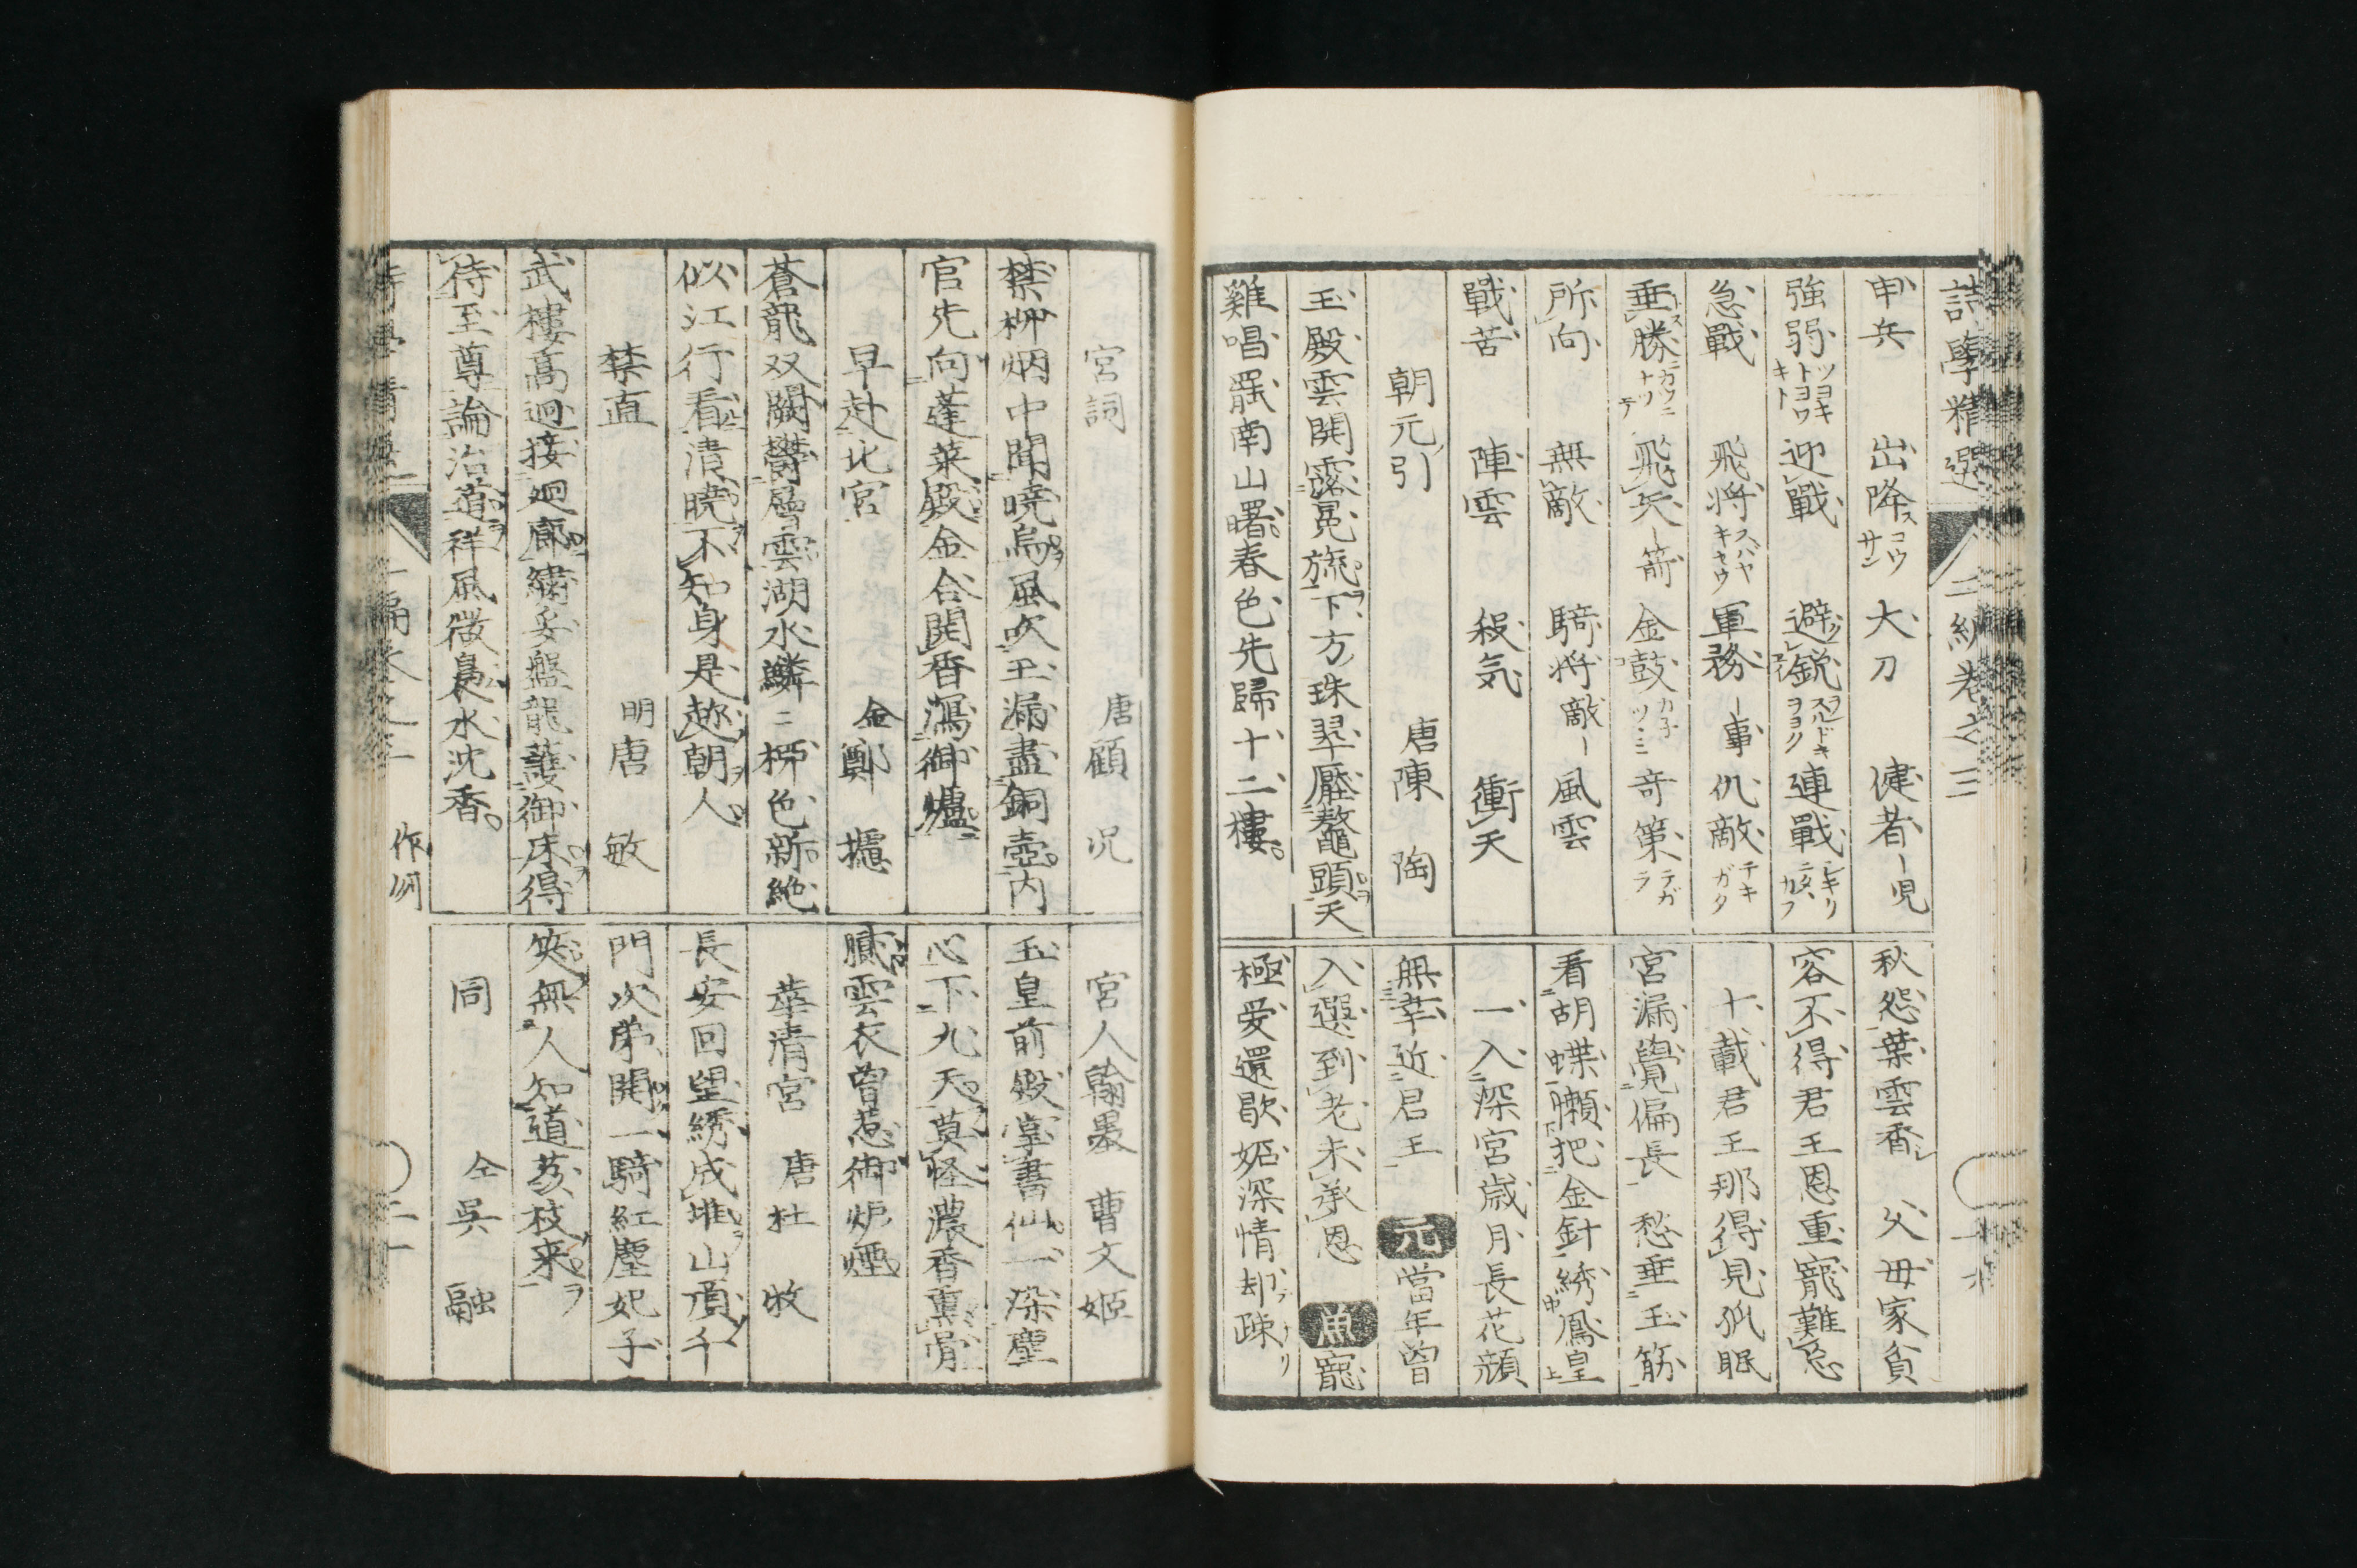 詩學精選 二編巻之三
甲兵 出降コウサンス 大刀 健者ー児
強弱ツヨキトヨワキト 迎戰 避鋭スルドキヲヨク 連戰シキリニタヽカフ
急戰 飛将スバヤキセウ 軍務ー事 仇敵テキガタ
乗勝カツニナツテ 飛矢ー箭 金鼓カ子ツヾミ 奇策
所向 無敵 騎将敵ー 風雲
戰苦 陣雲 殺気 衝天
朝元引 唐陳 陶
玉殿雲開露冕旒下方珠翠壓鼇頭天
雞唱罷南山曙春色先歸十二樓
秋怨葉雲香 父母家貧
容不得君王恩重寵難急
十載君王那得見孤眠
宮漏覺偏長 愁垂玉筯
看胡蝶懶把金針綉鳳皇
一入深宮歳月長花顔
無幸近君王 元 當年曾
入選到老未承恩 魚 寵
極愛還歇妬深情却疎
宮詞 唐顧 况
禁柳烟中聞曉烏風吹玉漏盡銅壺内
官先向蓬莱殿金合開香瀉御爐
早赴北宮 金鄭 攄
蒼龍双闕鬱層雲湖水鱗ニ柳色新絶
似江行看清曉不知身是趂朝人
禁直 明唐 敏
武樓高迥接廻廊繍妥盤龍護御床得
侍至尊論治道祥風微裊水沈香
宮人翰墨 曹文姫
玉皇前殿掌書仙一染塵
心下九天莫怪濃香薫骨
膩雲衣曽惹御炉煙
華清宮 唐杜 牧
長安回望綉成堆山頂千
門次弟開一騎紅塵妃子
笑無人知道茘枝来
同 仝呉 融
作例